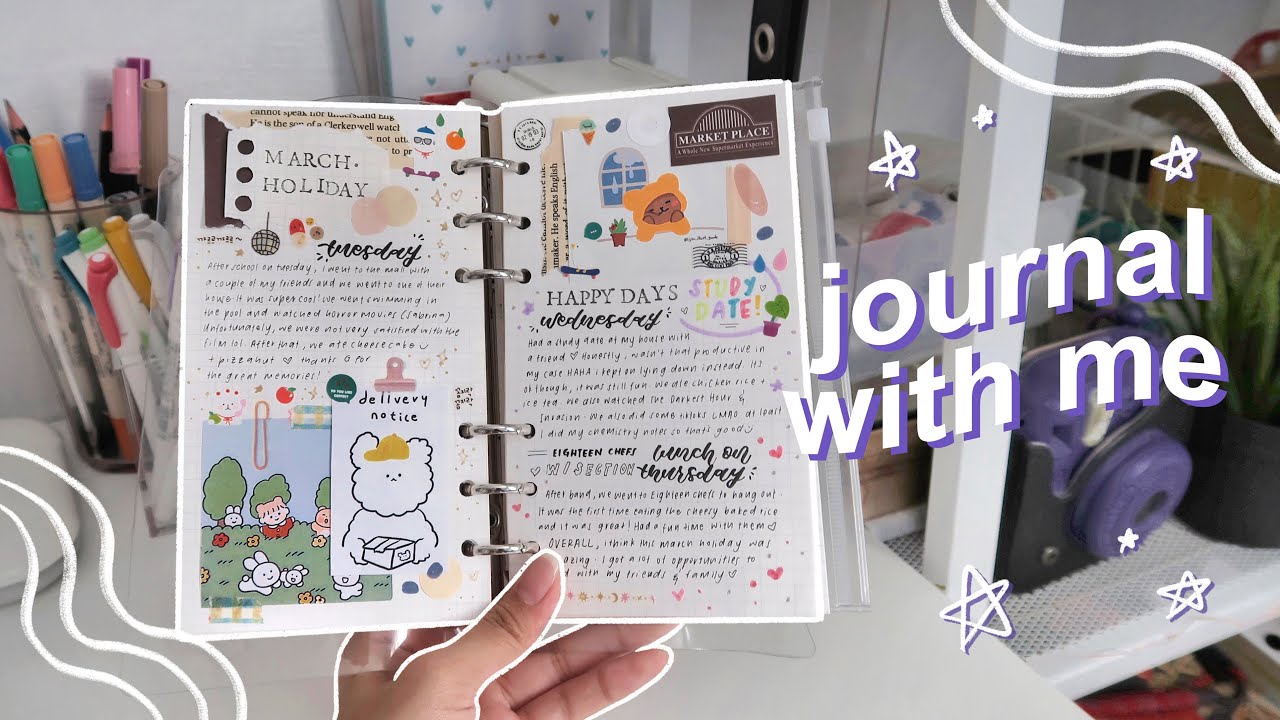 cannot speak nor understand Eng
He is the son of a Clerkenwell watch
MARCH.
HOLIDAY
tuesday
After school on tuesday, I went to the mall with
a couple of my friends and we went to one of their
house. It was super cool! We went swimming in
the pool and watched horror movies (Sabrina)
Unfortunately, we were not very satisfied with the
film lol. After that, we ate cheesecake
+ pizzahut ♡ thanks G for
the great memories!
delivery
notice
MARKET PLACE
A Whole New Supermarket Experience
maker. He speaks English
STUDY
DATE!
HAPPY DAYS
wednesday
Had a study date at my house with
a friend ♡ Honestly, wasn't that productive in
my case HAHA i kept on lying down instead. Its
ok though, it was still fun. We ate chicken rice +
ice tea. We also watched the Darkest Hour &
Invasion. We also did some tiktoks LMAO at least
I did my chemistry notes so that's good
EIGHTEEN CHEFS
W/ SECTION
lunch on
thursday
After band, we went to Eighteen Chefs to hang out.
It was the first time eating the cheesy baked rice
and it was great! Had a fun time with them ♡
OVERALL, i think this march holiday was
amazing. I got a lot of opportunities to
with my friends & family ♡
journal
with me